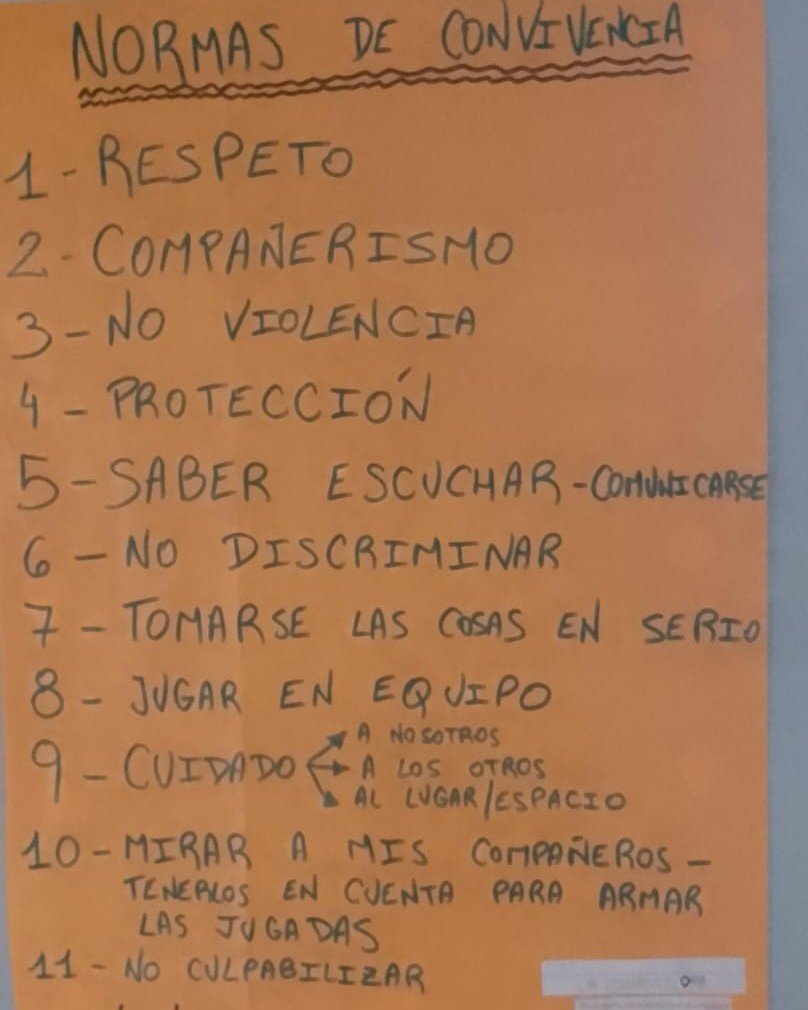 NORMAS DE CONVIVENCIA
1 - RESPETO
2 - COMPAÑERISMO
3 - NO VIOLENCIA
4 - PROTECCIÓN
5 - SABER ESCUCHAR - COMUNICARSE
6 - NO DISCRIMINAR
7 - TOMARSE LAS COSAS EN SERIO
8 - JUGAR EN EQUIPO
9 - CUIDADO
A NOSOTROS
A LOS OTROS
AL LUGAR/ESPACIO
10 - MIRAR A MIS COMPAÑEROS -
TENERLOS EN CUENTA PARA ARMAR
LAS JUGADAS
11 - NO CULPABILIZAR